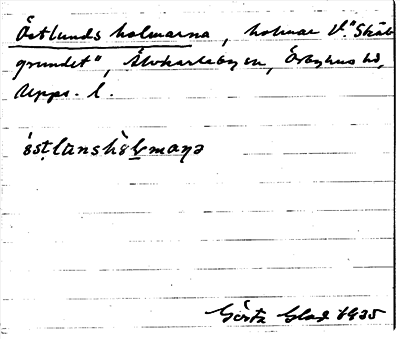 Östlunds holmarna, holmar V. "Skäl-
grundet", Älvkarleby sn, Örbyhus hd,
Upps. l.
östlunshòlmaṇa
Gösta Glad 1935